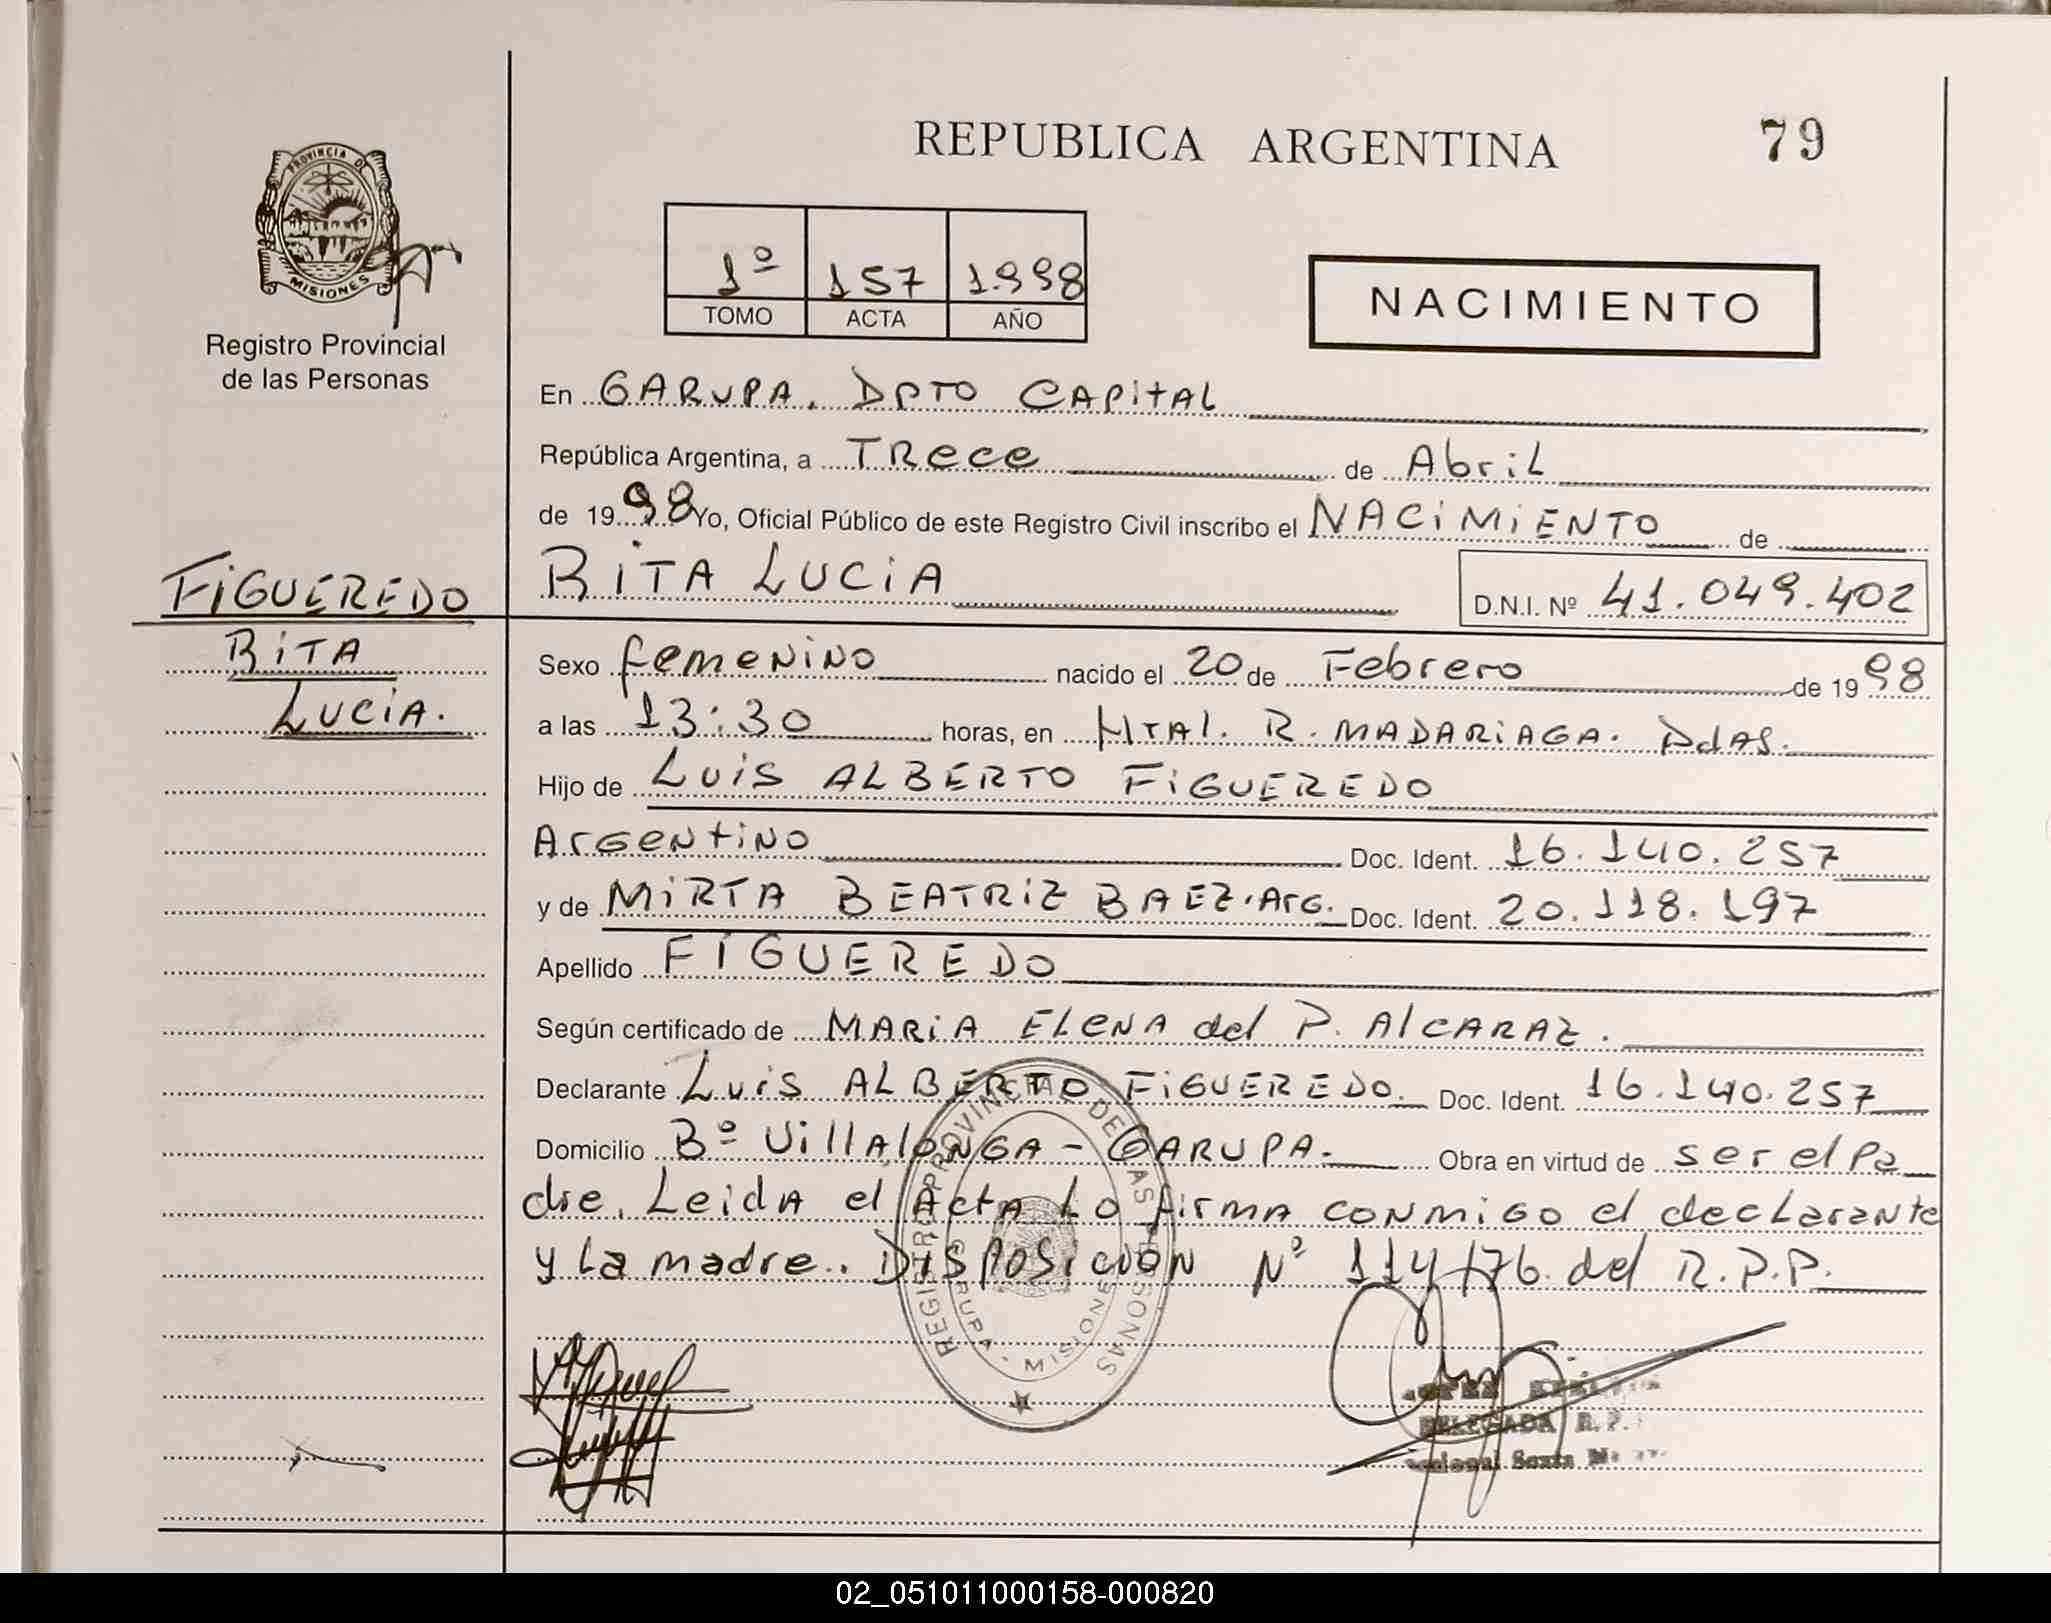 REPUBLICA ARGENTINA
79
PROVINCIA DE
MISIONES
Registro Provincial
de las Personas
1º 157 1.998
TOMO ACTA AÑO
NACIMIENTO
En GARUPA. DPTO CAPITAL
República Argentina, a TRece de AbriL
de 1998 Yo, Oficial Público de este Registro Civil inscribo el NACiMiENTO de
FiGUEREDO
RiTA LUCiA D.N.I. Nº 41.049.402
RiTA
LUCiA.
Sexo femeNiNO nacido el 20 de Febrero de 1998
a las 13:30 horas, en HtAl. R. MADARiAGA. PdAS.
Hijo de LUiS ALBERTO FiGUEREDO
ArGeNtiNO Doc. Ident. 16.140.257
y de MiRTA BEATRiZ BAEZ. ArG. Doc. Ident. 20.118.197
Apellido FIGUEREDO
Según certificado de MARiA ELeNA del P. AlCARAZ.
Declarante LuiS ALBERTO FiGUEREDO. Doc. Ident. 16.140.257
Domicilio Bº VillALONGA - GARUPA. Obra en virtud de ser el Pa
dre. LeidA el ActA Lo firmA coNmiGo el decLaraNte
y La madre. DISPOSiCiÓN Nº 114/76 del R.P.P.
REGISTRO PROVINCIAL DE LAS PERSONAS
GARUPA - MISIONES
DELEGADA R.P.
Sexta
02_051011000158-000820